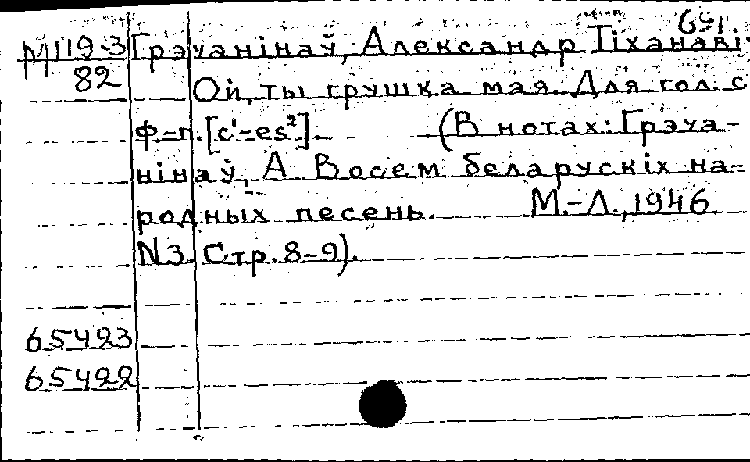 691.
М119-3 Грэчанінаў, Александр Тіханаві
82 Ой, ты грушка мая. Для гол. с
ф.-п. [c¹-es²]. (В нотах: Грэча-
нінаў, А. Восем беларускіх на-
родных песень. М.-Л., 1946
N3. Стр. 8-9).
65423
65422